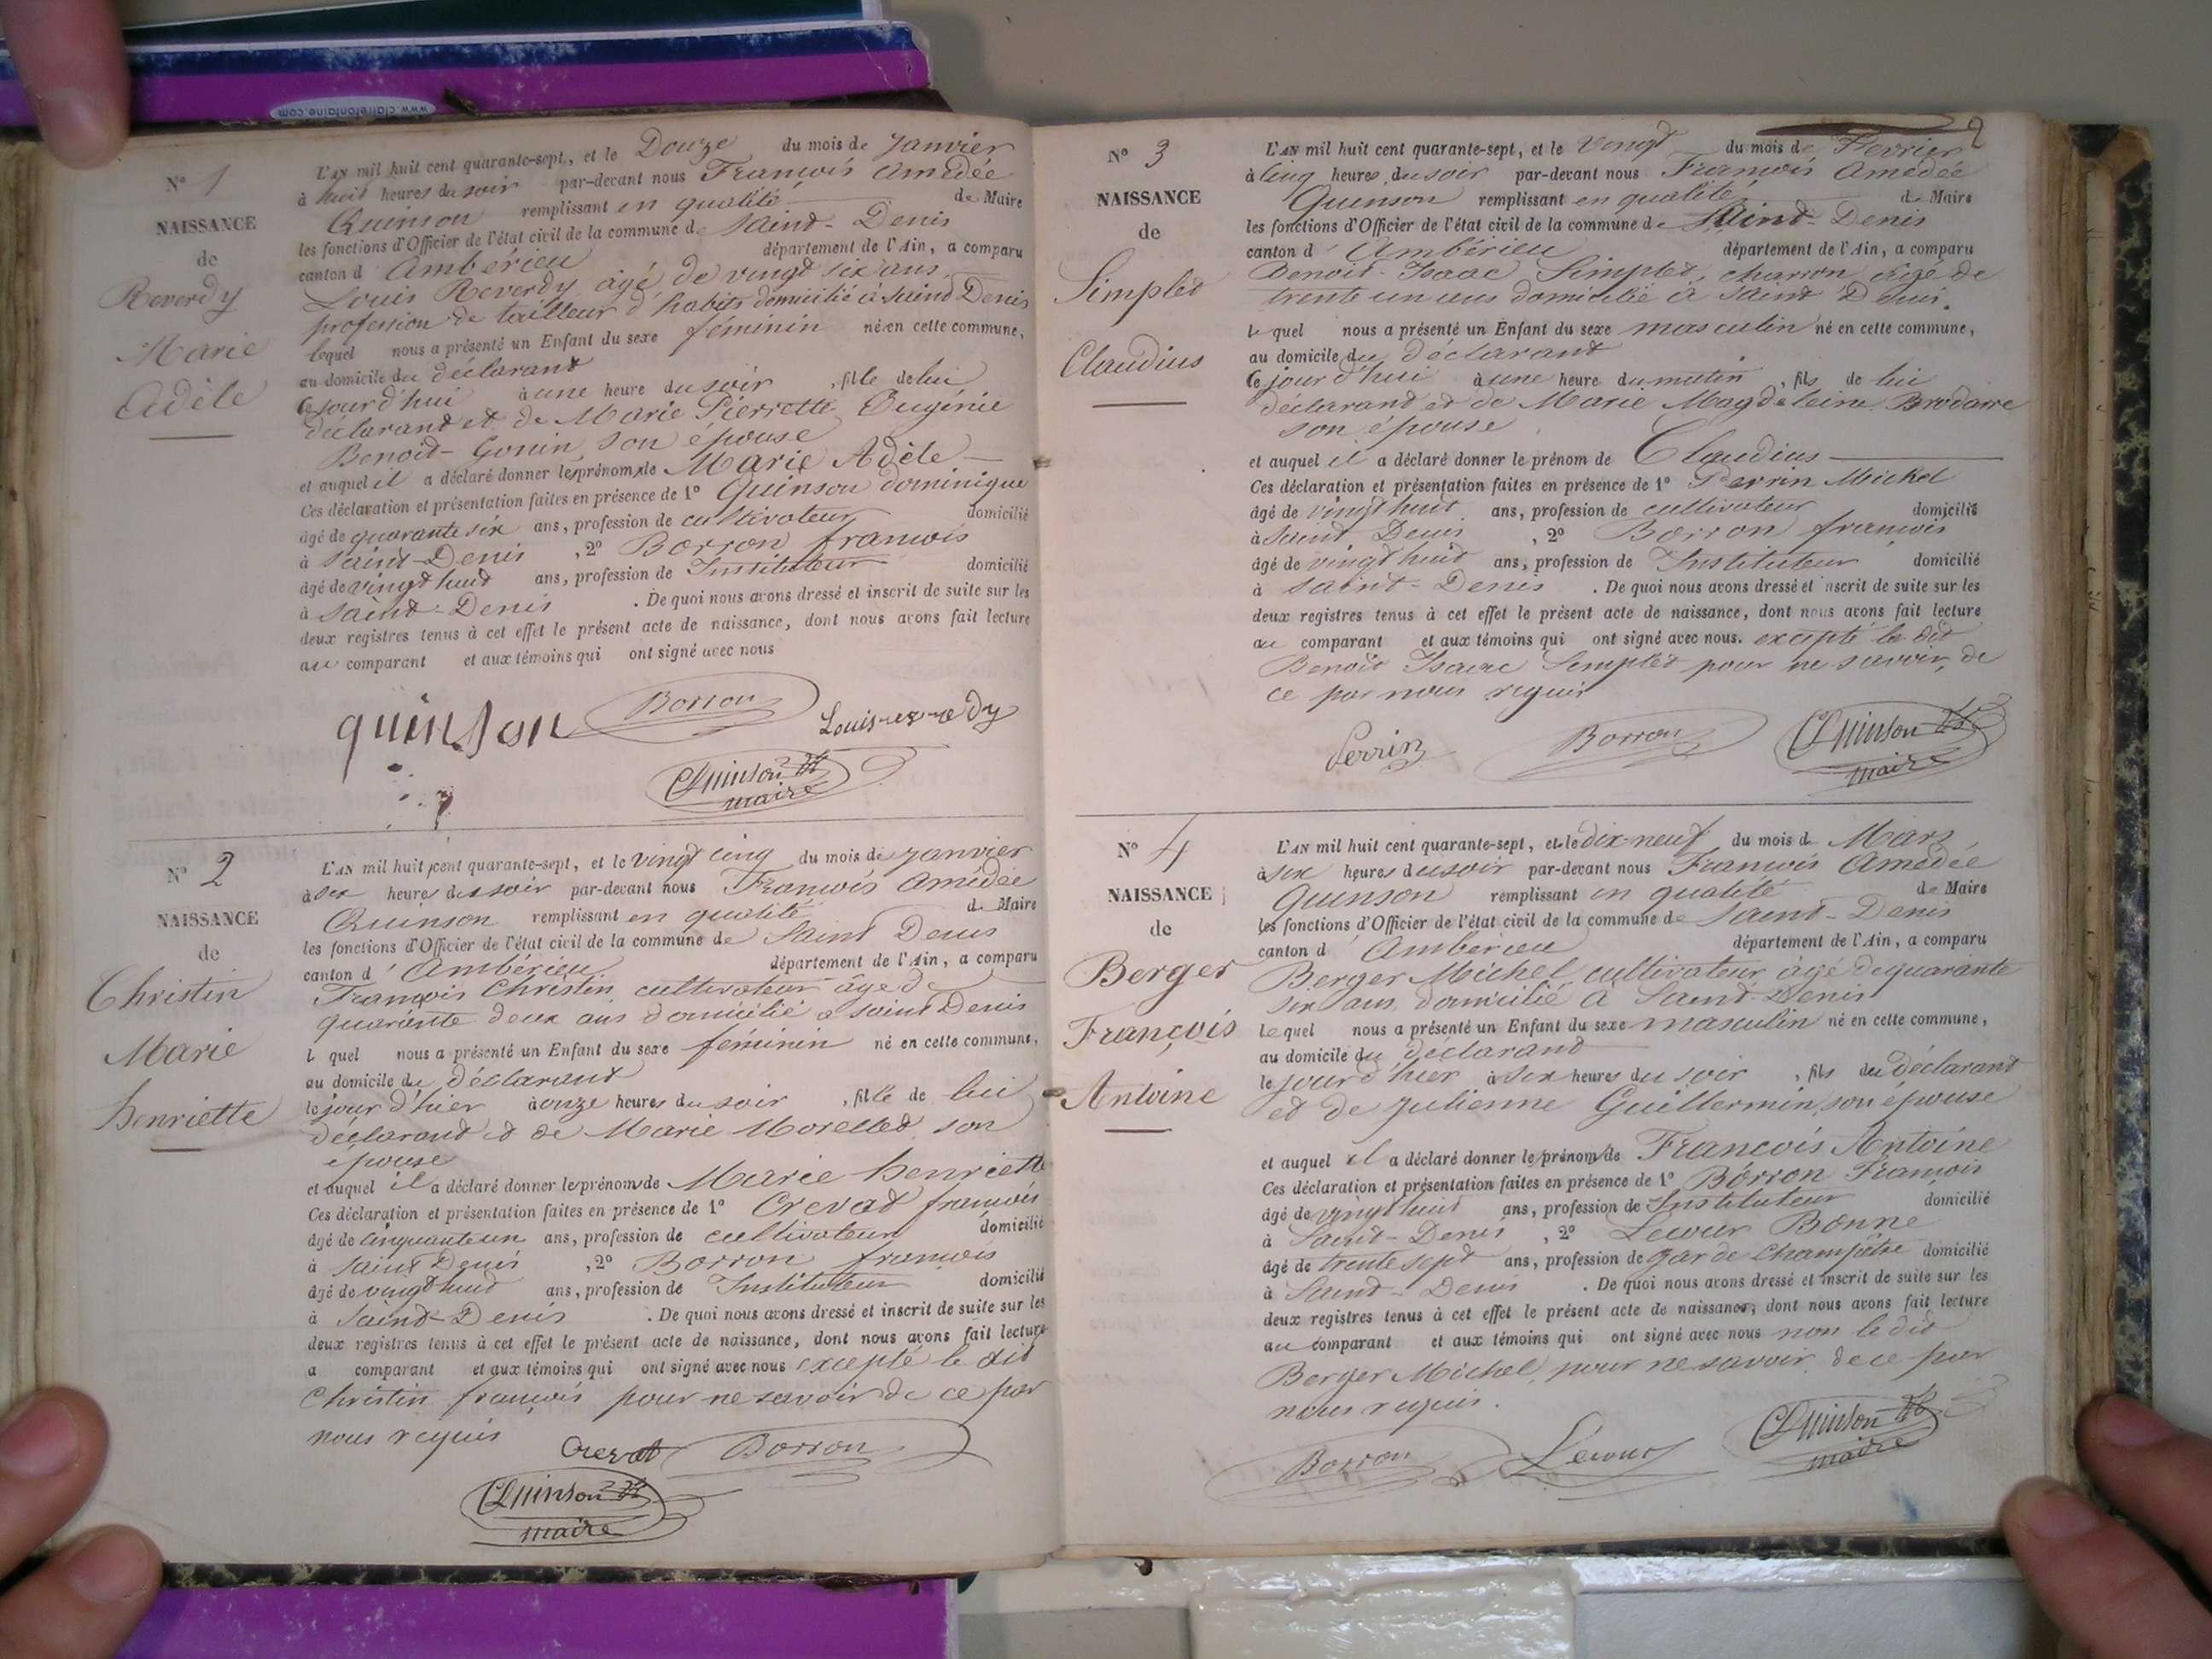 www.clairefontaine.com
N° 1
NAISSANCE
de
Reverdy
Marie
Adèle
L'AN mil huit cent quarante-sept, et le Douze du mois de Janvier
à huit heures du soir par-devant nous François Amédée
Quinson remplissant en qualité de Maire
les fonctions d'Officier de l'état civil de la commune de Saint-Denis
canton d'Ambérieu département de l'Ain, a comparu
Louis Reverdy âgé de vingt six ans,
profession de tailleur d'habits domicilié à Saint Denis
lequel nous a présenté un Enfant du sexe féminin né en cette commune,
au domicile du déclarant
Cejourd'hui à une heure du soir, fille de lui
déclarant et de Marie Pierrette Eugénie
Benoit-Gonin, son épouse
et auquel il a déclaré donner les prénoms de Marie Adèle
Ces déclaration et présentation faites en présence de 1° Quinson dominique
âgé de quarante six ans, profession de cultivateur domicilié
à Saint-Denis, 2° Borron françois
âgé de vingt huit ans, profession de Instituteur domicilié
à Saint-Denis. De quoi nous avons dressé et inscrit de suite sur les
deux registres tenus à cet effet le présent acte de naissance, dont nous avons fait lecture
au comparant et aux témoins qui ont signé avec nous
quinson Borron Louis reverdy
Quinson
maire
N° 2
NAISSANCE
de
Christin
Marie
henriette
L'AN mil huit cent quarante-sept, et le vingt cinq du mois de janvier
à six heures du soir par-devant nous François Amédée
Quinson remplissant en qualité de Maire
les fonctions d'Officier de l'état civil de la commune de Saint Denis
canton d'Ambérieu département de l'Ain, a comparu
François Christin, cultivateur âgé de
quarante deux ans domicilié à Saint Denis
le quel nous a présenté un Enfant du sexe féminin né en cette commune,
au domicile du déclarant
le jour d'hier à onze heures du soir, fille de lui
déclarant et de Marie Morellet son
épouse
et auquel il a déclaré donner les prénoms de Marie henriette
Ces déclaration et présentation faites en présence de 1° Crevat françois
âgé de cinquante un ans, profession de cultivateur domicilié
à Saint Denis, 2° Borron françois
âgé de vingt huit ans, profession de Instituteur domicilié
à Saint-Denis. De quoi nous avons dressé et inscrit de suite sur les
deux registres tenus à cet effet le présent acte de naissance, dont nous avons fait lecture
a comparant et aux témoins qui ont signé avec nous excepté le dit
Christin françois pour ne savoir de ce par
nous requis
Crevat Borron
Quinson
maire
2
N° 3
NAISSANCE
de
Simplet
Claudius
L'AN mil huit cent quarante-sept, et le vingt du mois de Fevrier
à cinq heures du soir par-devant nous François Amédée
Quinson remplissant en qualité de Maire
les fonctions d'Officier de l'état civil de la commune de Saint-Denis
canton d'Ambérieu département de l'Ain, a comparu
Benoit-Isaac Simplet, charron âgé de
trente un ans domicilié à Saint Denis.
Le quel nous a présenté un Enfant du sexe masculin né en cette commune,
au domicile du déclarant
Cejourd'hui à une heure du matin, fils de lui
déclarant et de Marie Magdeleine
son épouse
et auquel il a déclaré donner le prénom de Claudius
Ces déclaration et présentation faites en présence de 1° Perrin Michel
âgé de vingt huit ans, profession de cultivateur domicilié
à Saint Denis, 2° Borron françois
âgé de vingt huit ans, profession de Instituteur domicilié
à Saint-Denis. De quoi nous avons dressé et inscrit de suite sur les
deux registres tenus à cet effet le présent acte de naissance, dont nous avons fait lecture
au comparant et aux témoins qui ont signé avec nous. excepté le dit
Benoit Isaac Simplet pour ne savoir, de
ce par nous requis
Perrin Borron Quinson
maire
N° 4
NAISSANCE
de
Berger
François
Antoine
L'AN mil huit cent quarante-sept, et le dix-neuf du mois d Mars
à six heures du soir par-devant nous François Amédée
Quinson remplissant en qualité de Maire
les fonctions d'Officier de l'état civil de la commune de Saint-Denis
canton d'Ambérieu département de l'Ain, a comparu
Berger Michel, cultivateur âgé de quarante
six ans, domicilié à Saint-Denis
Le quel nous a présenté un Enfant du sexe masculin né en cette commune,
au domicile du déclarant
le jour d'hier à six heures du soir, fils du déclarant
et de Julienne Guillermin, son épouse
et auquel il a déclaré donner les prénoms de François Antoine
Ces déclaration et présentation faites en présence de 1° Borron François
âgé de vingt huit ans, profession de Instituteur domicilié
à Saint-Denis, 2° Lecour Bonne
âgé de trente sept ans, profession de garde champêtre domicilié
à Saint-Denis. De quoi nous avons dressé et inscrit de suite sur les
deux registres tenus à cet effet le présent acte de naissance, dont nous avons fait lecture
au comparant et aux témoins qui ont signé avec nous non le dit
Berger Michel, pour ne savoir, de ce par
nous requis.
Borron Lecour Quinson
maire